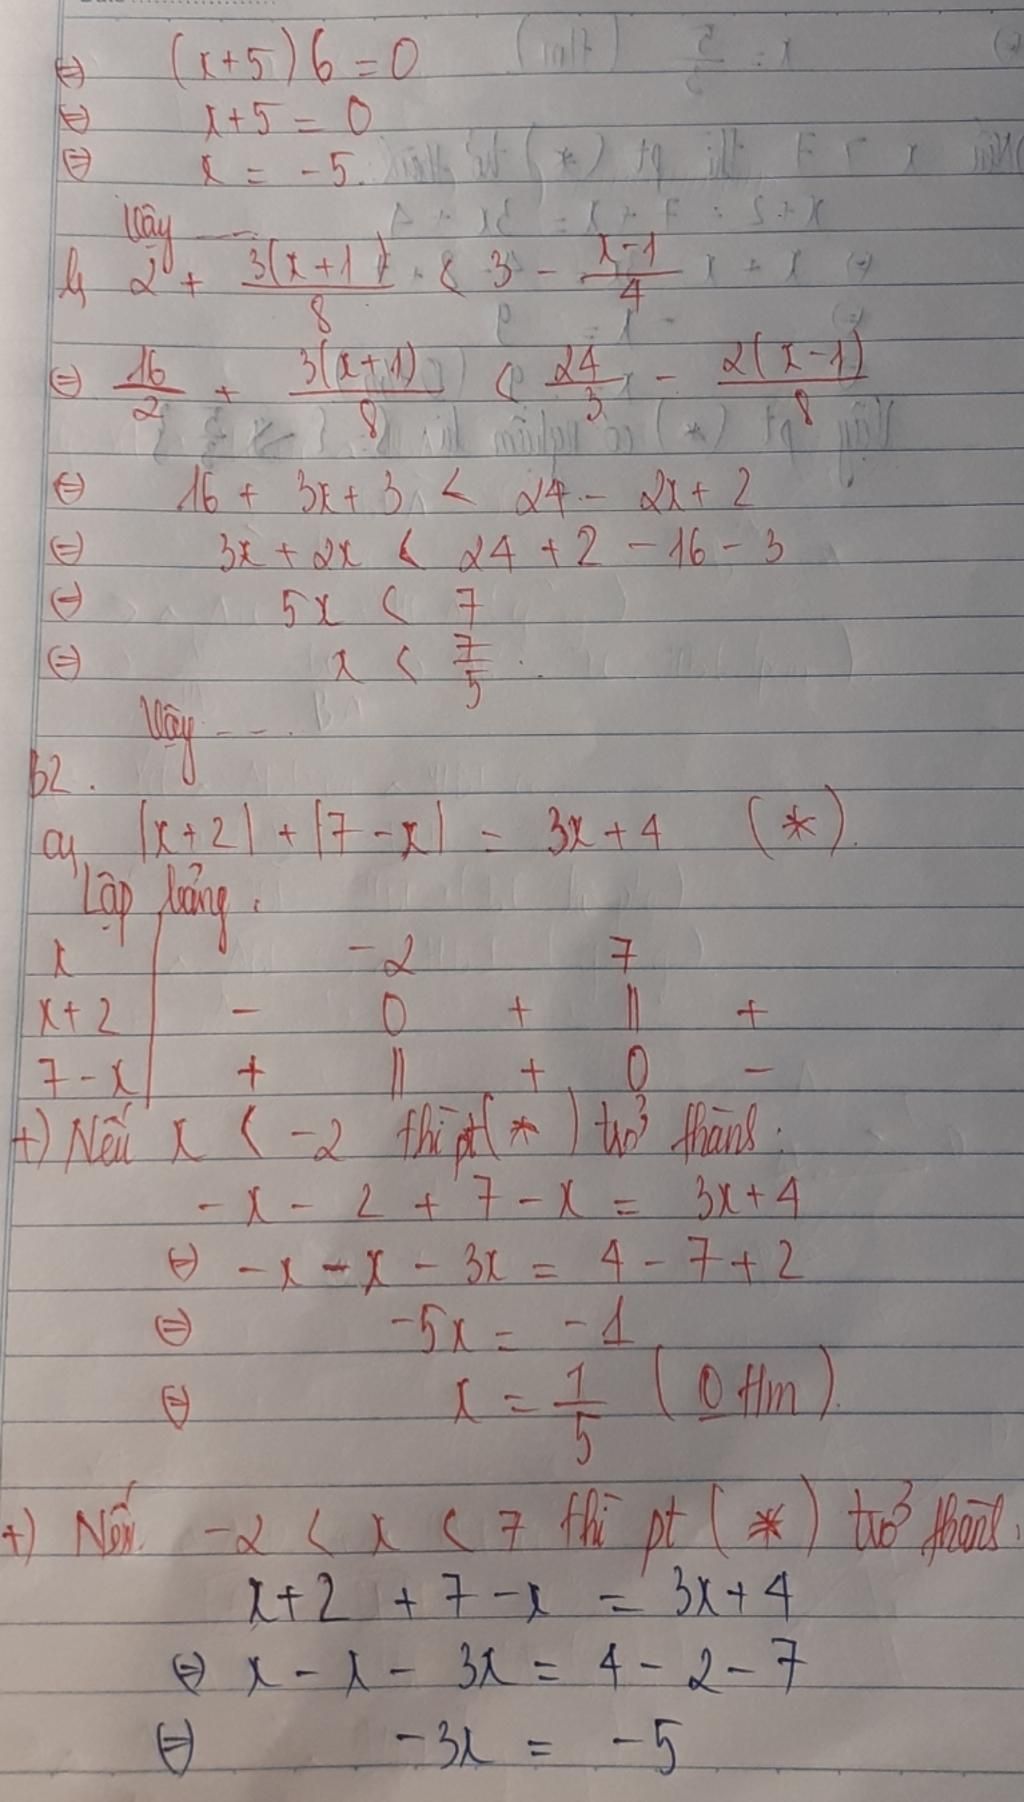 ⇔ (x+5)6=0
⇔ x+5=0
⇔ x = -5.
Vậy ---
b, 2 + 3(x+1)/8 < 3 - x-1/4
⇔ 16/2 + 3(x+1)/8 < 24/3 - 2(x-1)/8
⇔ 16 + 3x+3 < 24 - 2x+2
⇔ 3x+2x < 24+2-16-3
⇔ 5x < 7
⇔ x < 7/5.
Vậy ---.
b2.
a, |x+2|+|7-x| = 3x+4 (*).
Lập bảng.
x -2 7
x+2 - 0 + || +
7-x + || + 0 -
+) Nếu x < -2 thì pt(*) trở thành:
-x-2+7-x = 3x+4
⇔ -x-x-3x = 4-7+2
⇔ -5x = -1
⇔ x = 1/5 (0 tlm).
+) Nếu -2 < x < 7 thì pt (*) trở thành:
x+2+7-x = 3x+4
⇔ x-x-3x = 4-2-7
⇔ -3x = -5